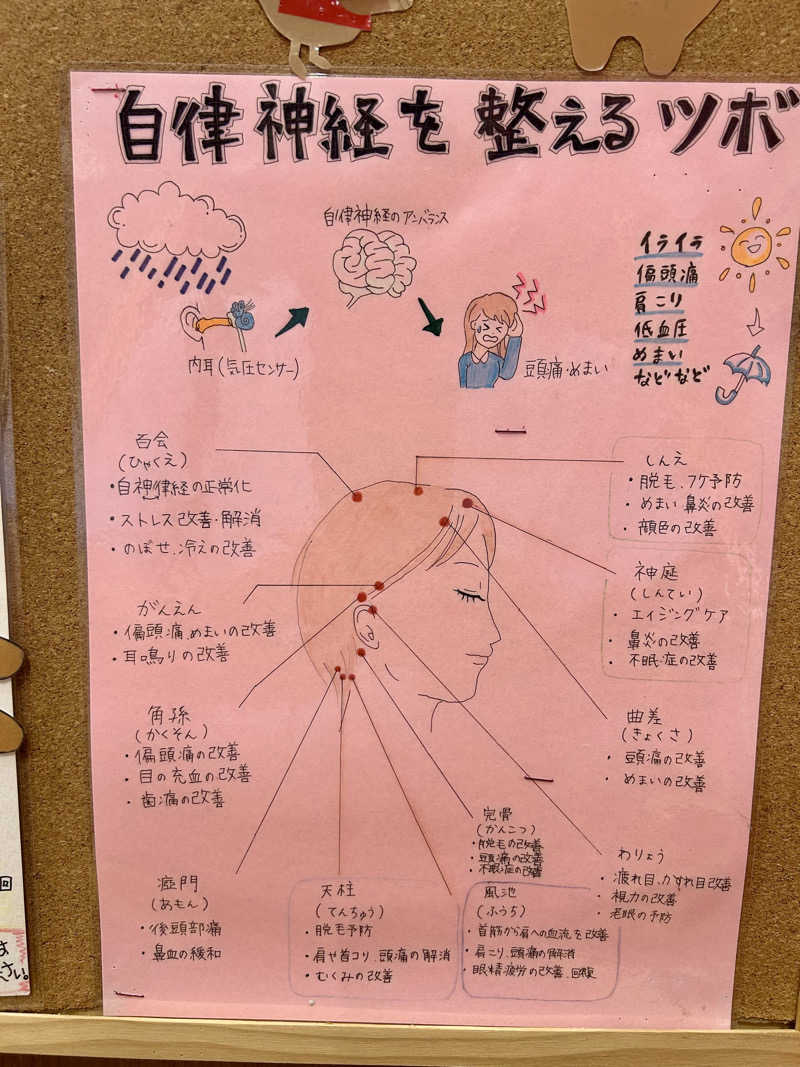 自律神経を整えるツボ
自律神経のアンバランス
内耳(気圧センサー)
頭痛・めまい
イライラ
偏頭痛
肩こり
低血圧
めまい
などなど
百会
(ひゃくえ)
・自神律経の正常化
・ストレス改善・解消
・のぼせ、冷えの改善
しんえ
・脱毛、フケ予防
・めまい 鼻炎の改善
・顔色の改善
神庭
(しんてい)
・エイジングケア
・鼻炎の改善
・不眠症の改善
がんえん
・偏頭痛、めまいの改善
・耳鳴りの改善
角孫
(かくそん)
・偏頭痛の改善
・目の充血の改善
・歯痛の改善
曲差
(きょくさ)
・頭痛の改善
・めまいの改善
完骨
(かんこつ)
・脱毛の改善
・頭痛の改善
・不眠症の改善
わりょう
・疲れ目、かすれ目改善
・視力の改善
・老眼の予防
瘂門
(あもん)
・後頭部痛
・鼻血の緩和
天柱
(てんちゅう)
・脱毛予防
・肩や首コリ、頭痛の解消
・むくみの改善
風池
(ふうち)
・首筋から肩への血流を改善
・肩こり、頭痛の解消
・眼精疲労の改善、回復
回
は
さい。